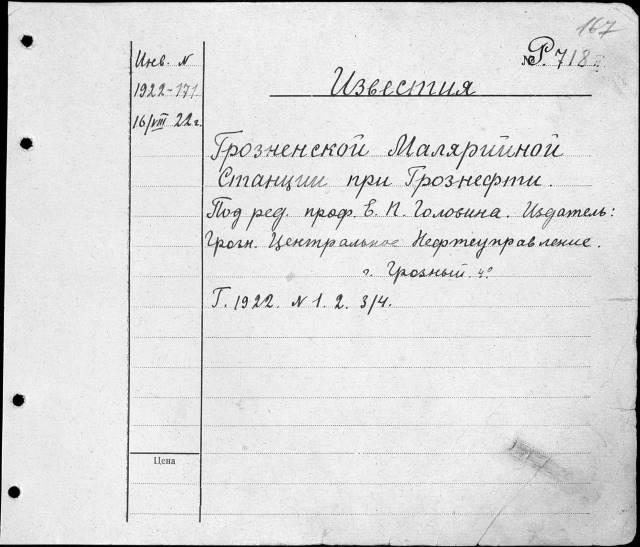 167
Инв. N
№ Р. 718
1922-171
Известия
16/VIII 22 г.
Грозненской Малярийной
Станции при Грознефти.
Под ред. проф. Е. П. Головина. Издатель:
Грозн. Центральное Нефтеуправление.
г. Грозный. 4°
Г. 1922. N 1. 2. 3/4.
Цена